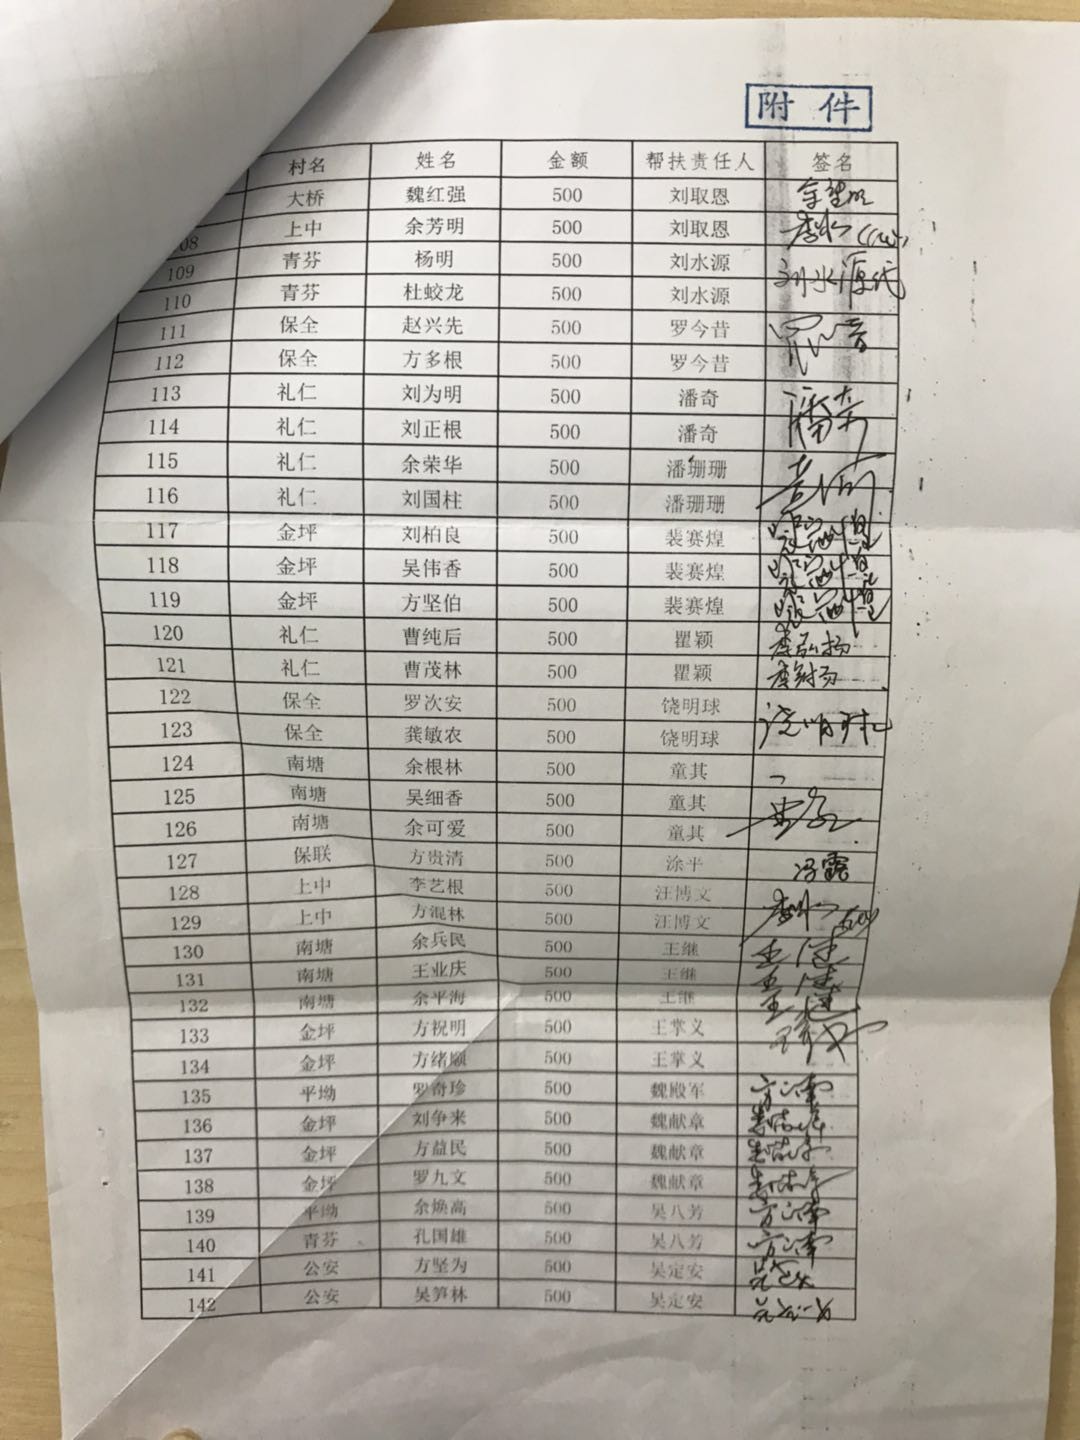 附件
村名 姓名 金额 帮扶责任人 签名
大桥 魏红强 500 刘取恩
08 上中 余芳明 500 刘取恩
109 青芬 杨明 500 刘水源 刘水源代
110 青芬 杜蛟龙 500 刘水源
111 保全 赵兴先 500 罗今昔
112 保全 方多根 500 罗今昔
113 礼仁 刘为明 500 潘奇 潘奇
114 礼仁 刘正根 500 潘奇
115 礼仁 余荣华 500 潘珊珊
116 礼仁 刘国柱 500 潘珊珊
117 金坪 刘柏良 500 裴赛煌
118 金坪 吴伟香 500 裴赛煌
119 金坪 方坚伯 500 裴赛煌
120 礼仁 曹纯后 500 瞿颖 李弘扬
121 礼仁 曹茂林 500 瞿颖
122 保全 罗次安 500 饶明球 饶明球
123 保全 龚敏农 500 饶明球
124 南塘 余根林 500 童其
125 南塘 吴细香 500 童其
126 南塘 余可爱 500 童其
127 保联 方贵清 500 涂平 冯露
128 上中 李艺根 500 汪博文
129 上中 方混林 500 汪博文
130 南塘 余兵民 500 王继
131 南塘 王业庆 500 王继
132 南塘 余平海 500 王继
133 金坪 方祝明 500 王掌义
134 金坪 方绪顺 500 王掌义
135 平坳 罗奇珍 500 魏殿军
136 金坪 刘争来 500 魏献章
137 金坪 方益民 500 魏献章
138 金坪 罗九文 500 魏献章
139 平坳 余焕高 500 吴八芳
140 青芬 孔国雄 500 吴八芳
141 公安 方坚为 500 吴定安
142 公安 吴笋林 500 吴定安